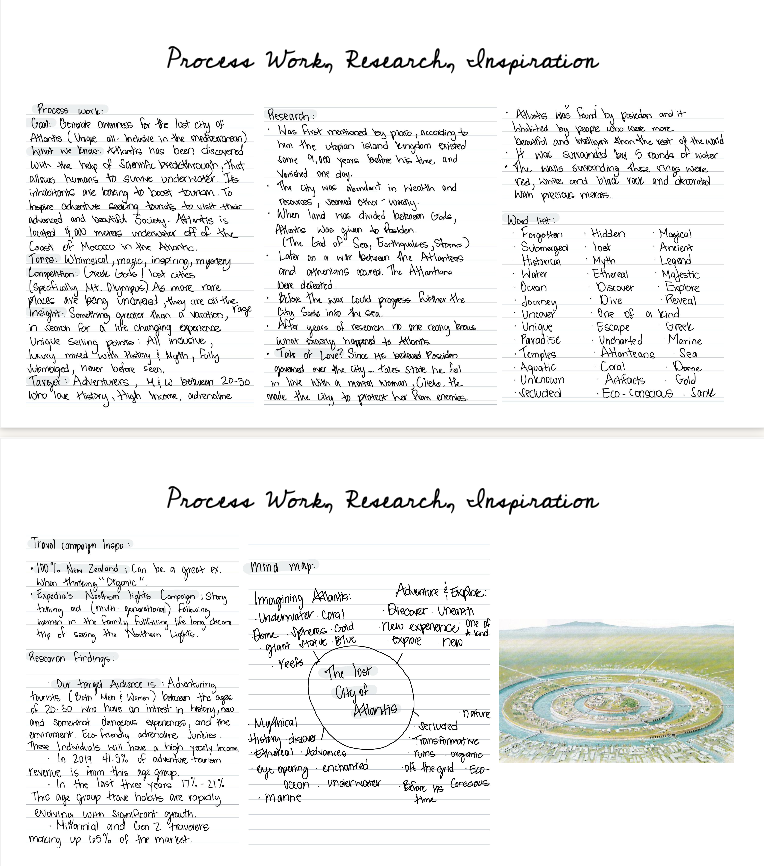 Process Work, Research, Inspiration
Process work:
Goal: Generate awareness for the lost city of
Atlantis (Unique all-inclusive in the mediterranean)
What we know: Atlantis has been discovered
with the help of Scientific breakthrough, that
allows humans to survive underwater. Its
inhabitants are looking to boost tourism. To
inspire adventure seeking tourists to visit their
advanced and beautiful society. Atlantis is
located 9,000 meters underwater off of the
Coast of Morocco in the Atlantic.
Tones: Whimsical, magic, inspiring, mystery
Competition: Greek Gods / lost cities
(Specifically Mt. Olympus) As more rare
places are being uncovered, they are all the
rage
Insight: Something greater than a vacation,
in search for a life changing experience
Unique Selling points: All inclusive,
luxury mixed with History & Myth, fully
submerged, never before seen.
Target: Adventurers, M & W between 20-30
who love History, High Income, adrenaline
Research:
· Was first mentioned by plato, according to
him the utopian island kingdom existed
some 9,000 years before his time, and
vanished one day.
· The city was abundant in wealth and
resources, seemed other-worldly.
· When land was divided between Gods,
Atlantis was given to Posiden
(The God of Sea, Earthquakes, Storms)
· Later on a war between the Atlanteans
and athenians occured. The Atlanteans
were defeated
· Before the war could progress further the
City sank into the sea.
· After years of research no one really knows
what exactly happened to Atlantis
· Tale of Love? Since the beloved Posiden
governed over the city... tales state he fell
in love with a mortal woman, Cleito. He
made the city to protect her from enemies.
· Atlantis was found by poseidon and it
inhabited by people who were more
beautiful and intelligent than the rest of the world
It was surrounded by 5 rounds of water
· The walls surrounding these rings were
red, white and black rock and decorated
with precious metals.
Word list:
· Forgotten · Hidden · Magical
· Submerged · lost · Ancient
· Historical · Myth · Legend
· Water · Ethereal · Majestic
· Ocean · Discover · Explore
· Journey · Dive · Reveal
· Uncover · One of a kind
· Unique · Escape · Greek
· Paradise · Uncharted · Marine
· Temples · Atlanteans · Sea
· Aquatic · Coral · Dome
· Unknown · Artifacts · Gold
· Secluded · Eco-Conscious · Sank
Process Work, Research, Inspiration
Travel campaign Inspo:
· 100% New Zealand: Can be a great ex.
When thinking "Organic".
· Expedia's Northern lights Campaign, Story
telling ad (multi generational) following
women in the family fulfilling life long dream
trip of seeing the Northern Lights.
Research Findings:
· Our Target Audience is: Adventuring
tourists (Both Men & Women) between the ages
of 20-30 who have an interest in history, new
and somewhat dangerous experiences, and the
environment. Eco-friendly adrenaline Junkies.
These Individuals will have a high yearly Income
· In 2019 41.3% of adventure tourism
revenue is from this age group.
· In the last three years 17% - 21%
This age group travel habits are rapidly
evolving with significant growth.
· Millennial and Gen Z travelers
making up 65% of the market.
Mind map:
Imagining Atlantis:
· Underwater · Coral
Dome · Spheres · Gold
· giant statue · Blue
· reefs
Adventure & Explore:
· Discover · Unearth
new experience one of a kind
explore new
The lost
City of
Atlantis
· Mythical
History discover
· Ethereal · Advances
· eye opening · enchanted
ocean · underwater
· marine
nature
· Secluded
· Transformative
· ruins · organic
· off the grid · Eco-Conscious
· Before its time